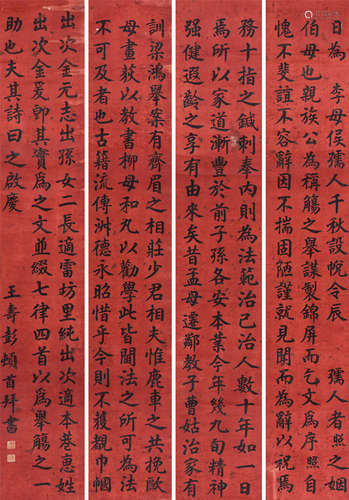 日為　李母侯孺人千秋設帨令辰　孺人者照之姻
伯母也親族公為稱觴之舉謀製錦屏而乞文為序照自
愧不斐誼不容辭因不揣固陋謹就見聞而為辭以祝焉
務十指之鍼刺奉內則為法範治己治人數十年如一日
焉所以家道漸豐於前子孫各安本業今年幾九旬精神
強健遐齡之享有由來矣昔孟母遷鄰教子曹姑治家有
訓梁鴻舉案有齊眉之相莊少君相夫惟鹿車之共挽歐
母畫荻以教書柳母和丸以勸學此皆閨法之所可為法
不可及者也古籍流傳洲德永昭惜乎今則不獲觀巾幗
出次金元志出孫女二長適雷坊里純出次適本巷惠姓
出次金爰即其實為之文並綴七律四首以為舉觴之一
助也夫其詩曰之啟慶
王壽彭頓首拜書